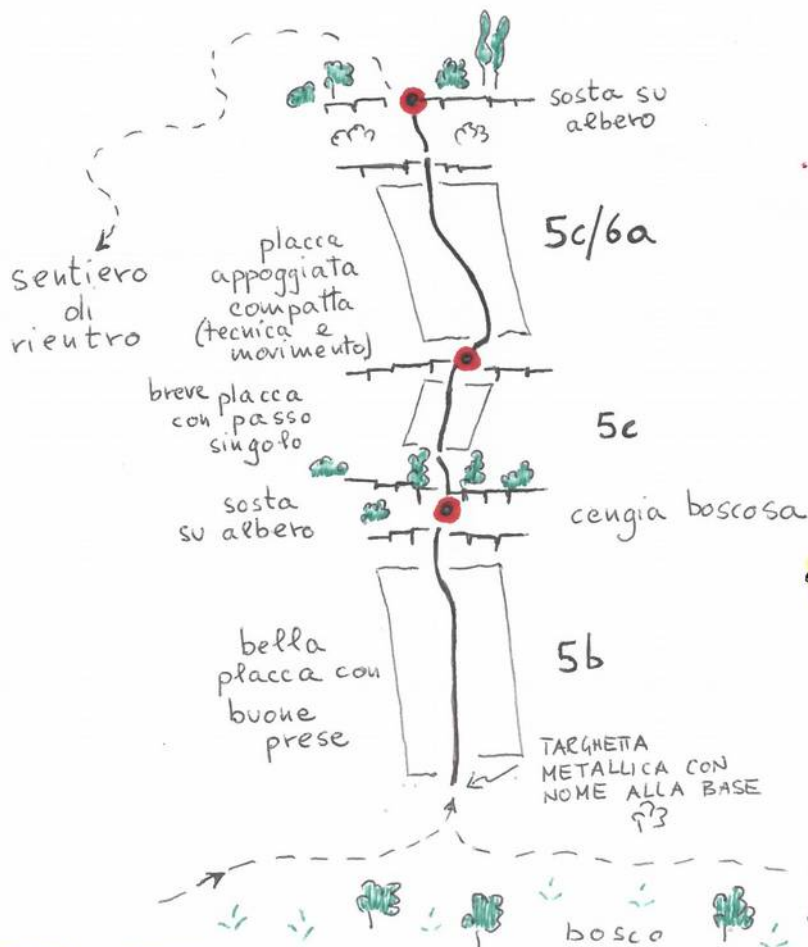 sosta su
albero
5c/6a
placca
appoggiata
compatta
(tecnica e
movimento)
sentiero
di
rientro
breve placca
con passo
singolo
5c
sosta
su albero
cengia boscosa
bella
placca con
buone
prese
5b
TARGHETTA
METALLICA CON
NOME ALLA BASE
bosco